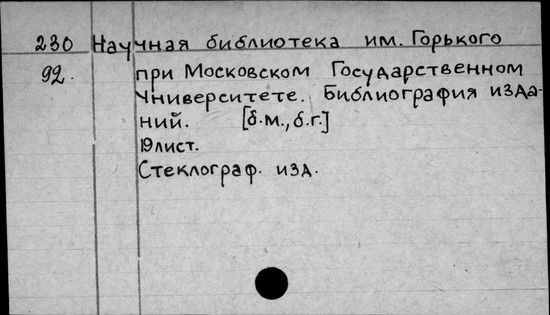 230 Научная библиотека им. Горького
92. при Московском Государственном
Университете. Библиография изда-
ний. [б.м., б.г.]
19 лист.
Стеклограф. изд.